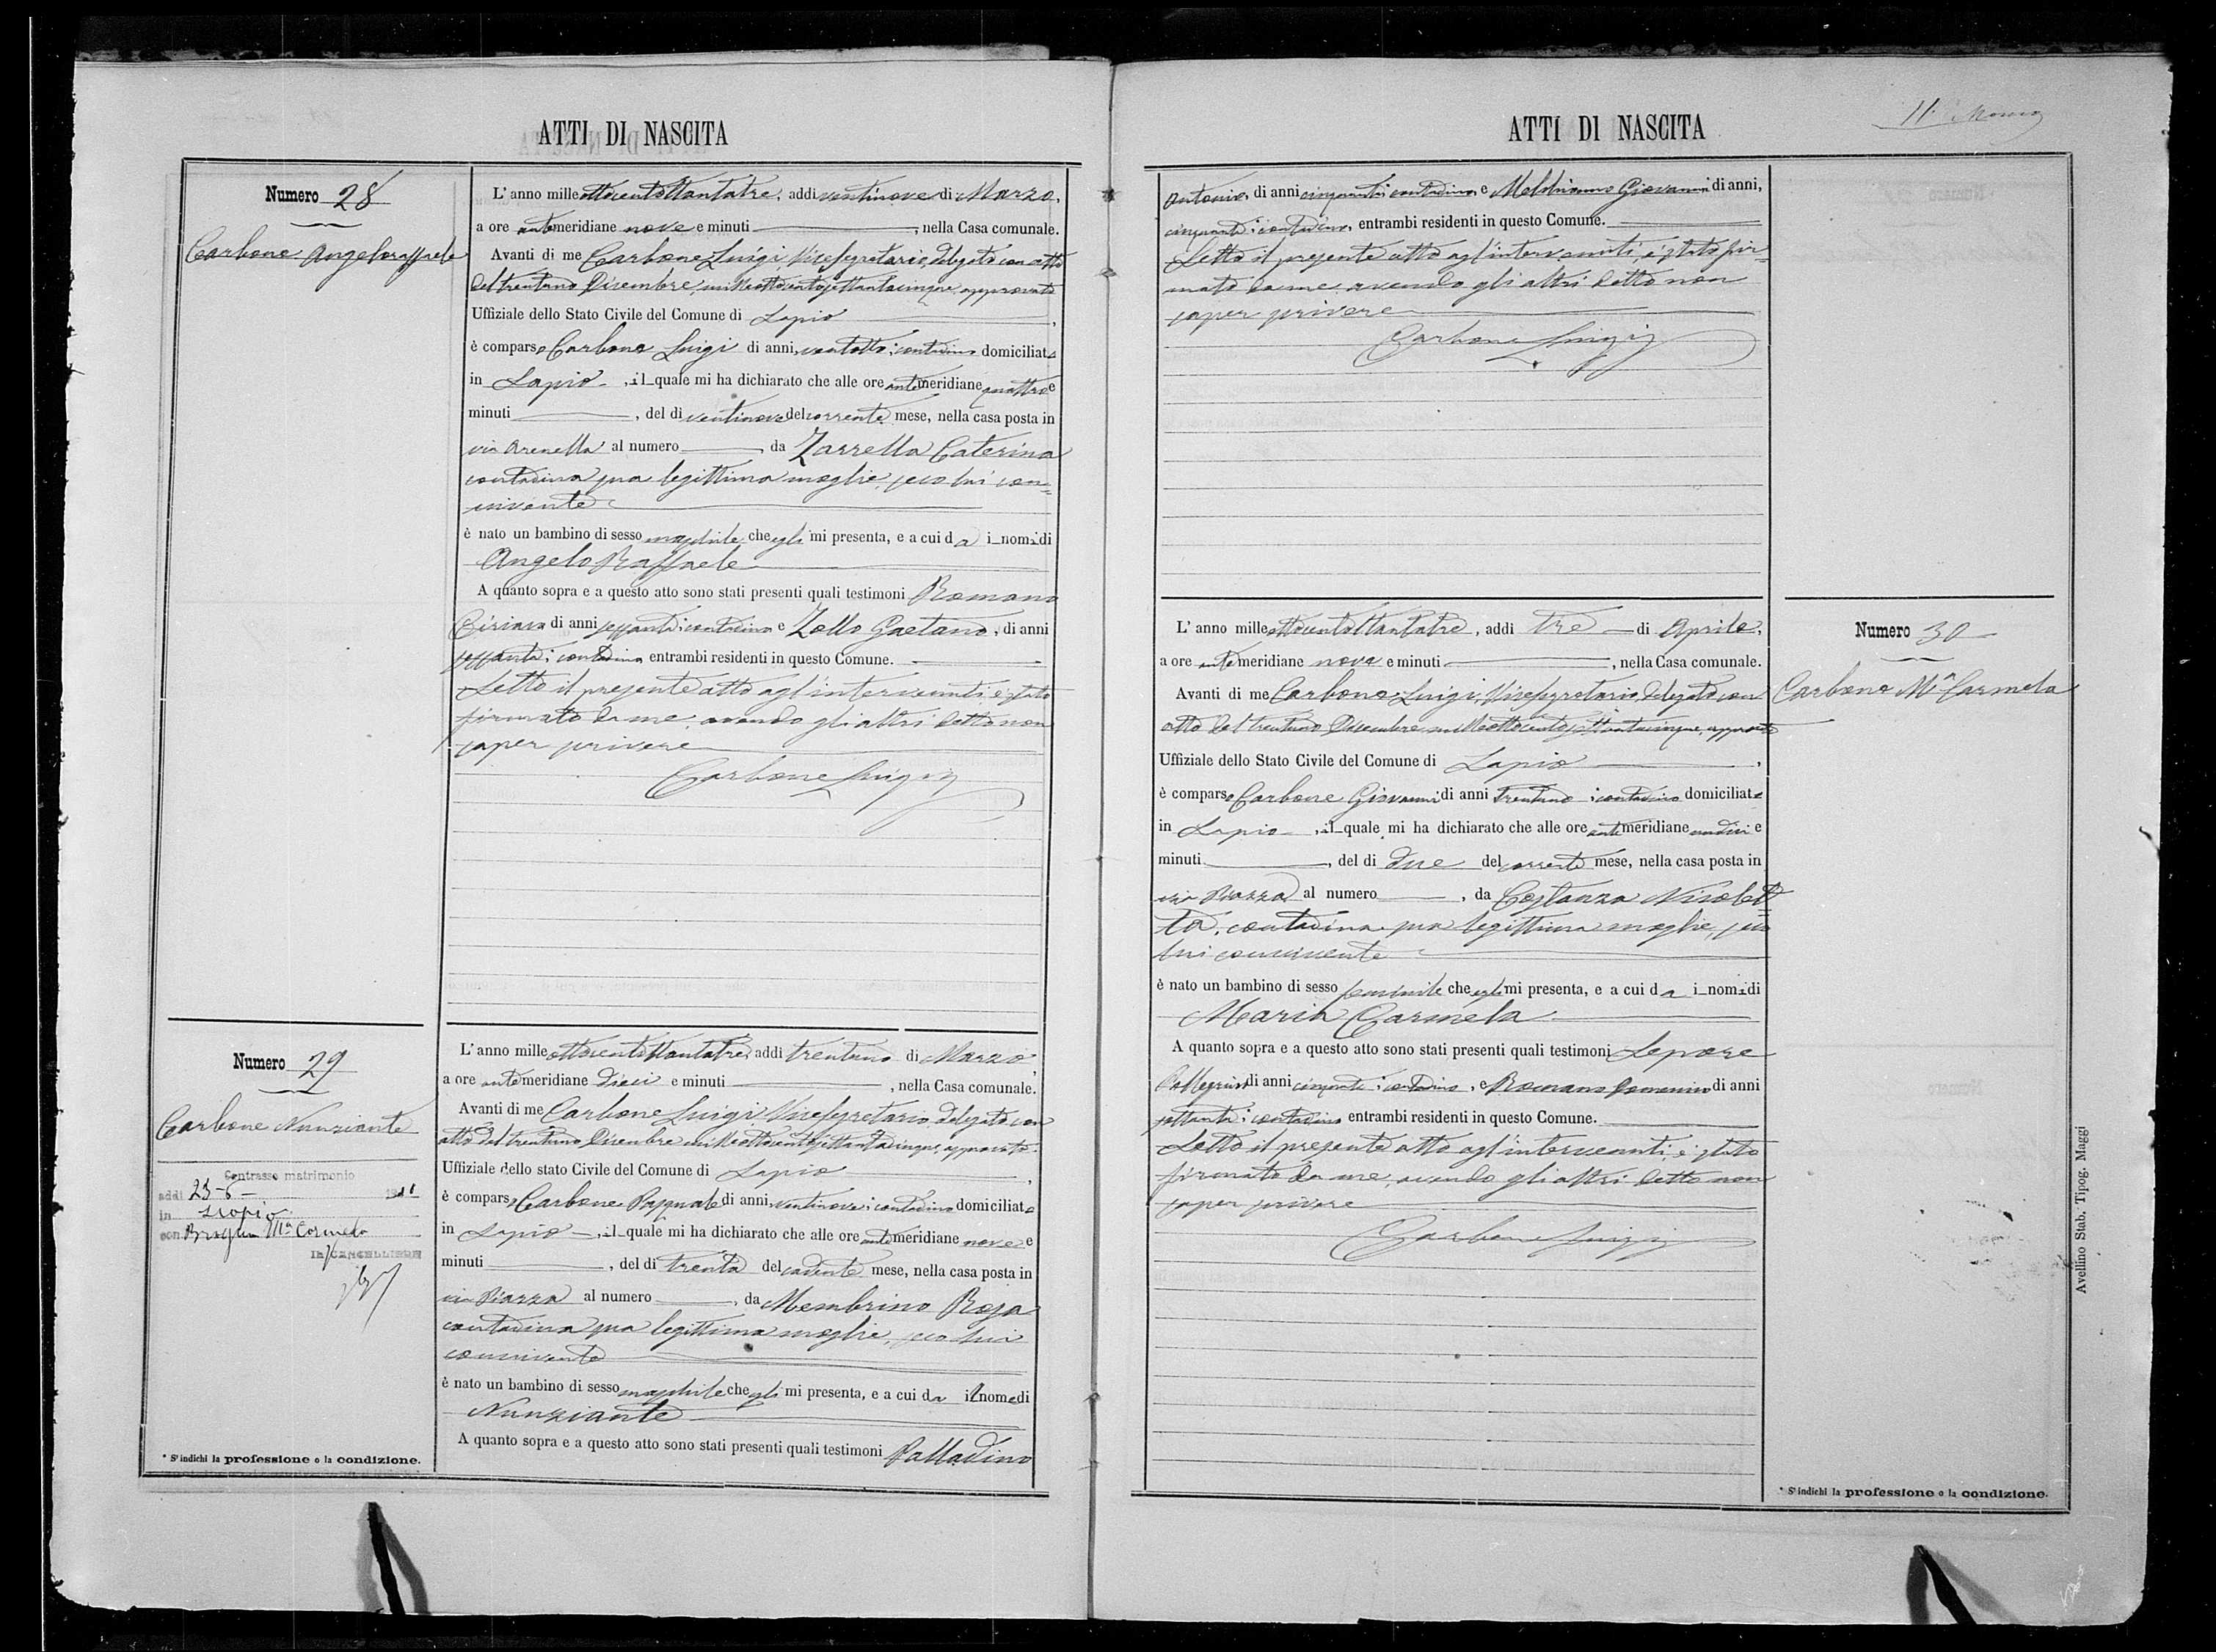 ATTI DI NASCITA
Numero 28
Carbone Angeloraffaele
L'anno milleottocentottantatre, addi ventinove di Marzo,
a ore antemeridiane nove e minuti, nella Casa comunale.
Avanti di me Carbone Luigi, Vicesegretario, delegato con atto
del trentuno Dicembre, milleottocentosettantacinque, approvato
Uffiziale dello Stato Civile del Comune di Lapio,
è comparso Carbone Luigi di anni ventotto: contadino domiciliato
in Lapio, il quale mi ha dichiarato che alle ore antemeridiane quattro e
minuti, del dì ventinove del corrente mese, nella casa posta in
via Arenella al numero, da Zarrella Caterina
contadina sua legittima moglie, seco lui con=
vivente
è nato un bambino di sesso maschile che egli mi presenta, e a cui dà i nomi di
Angelo Raffaele
A quanto sopra e a questo atto sono stati presenti quali testimoni Romano
Ciriaco di anni sessanta: contadino e Zollo Gaetano, di anni
sessanta: contadino entrambi residenti in questo Comune.
Letto il presente atto agl'intervenuti è stato
firmato da me, avendo gli altri detto non
saper scrivere
Carbone Luigi
Numero 29
Carbone Nunziante
Contrasse matrimonio
addì 23-6- 1911
in Lapio
con Ma Carmela
IL CANCELLIERE
L'anno milleottocentottantatre, addi trentuno di Marzo,
a ore antemeridiane dieci e minuti, nella Casa comunale.
Avanti di me Carbone Luigi, Vicesegretario, delegato con
atto del trentuno Dicembre milleottocentosettantacinque, approvato
Uffiziale dello stato Civile del Comune di Lapio,
è comparso Carbone Pasquale di anni ventinove: contadino domiciliato
in Lapio, il quale mi ha dichiarato che alle ore antemeridiane nove e
minuti, del dì trenta del cadente mese, nella casa posta in
via Piazza al numero, da Membrino Rosa
contadina sua legittima moglie, seco lui
convivente
è nato un bambino di sesso maschile che egli mi presenta, e a cui dà il nome di
Nunziante
A quanto sopra e a questo atto sono stati presenti quali testimoni Palladino
* S'indichi la professione o la condizione.
ATTI DI NASCITA
11
Antonio, di anni cinquanta: contadino, e Giovanni di anni,
cinquanta: contadino, entrambi residenti in questo Comune.
Letto il presente atto agl'intervenuti, è stato fir=
mato da me, avendo gli altri detto non
saper scrivere
Carbone Luigi
Numero 30
Carbone Ma Carmela
L'anno milleottocentottantatre, addi tre di Aprile,
a ore antemeridiane nove e minuti, nella Casa comunale.
Avanti di me Carbone Luigi, Vicesegretario, delegato con
atto del trentuno Dicembre milleottocentosettantacinque, approvato
Uffiziale dello Stato Civile del Comune di Lapio,
è comparso Carbone Giovanni di anni trentuno: contadino domiciliato
in Lapio, il quale mi ha dichiarato che alle ore antemeridiane undici e
minuti, del dì due del corrente mese, nella casa posta in
via Piazza al numero, da Costanza Nicolet=
ta, contadina sua legittima moglie, seco
lui convivente
è nato un bambino di sesso femminile che egli mi presenta, e a cui dà i nomi di
Maria Carmela
A quanto sopra e a questo atto sono stati presenti quali testimoni Lepore
Pellegrino di anni cinquanta: contadino, e Romano Domenico di anni
settanta: contadino entrambi residenti in questo Comune.
Letto il presente atto agl'intervenuti, è stato
firmato da me, avendo gli altri detto non
saper scrivere
Carbone Luigi
* S'indichi la professione o la condizione.
Avellino Stab. Tipog. Maggi